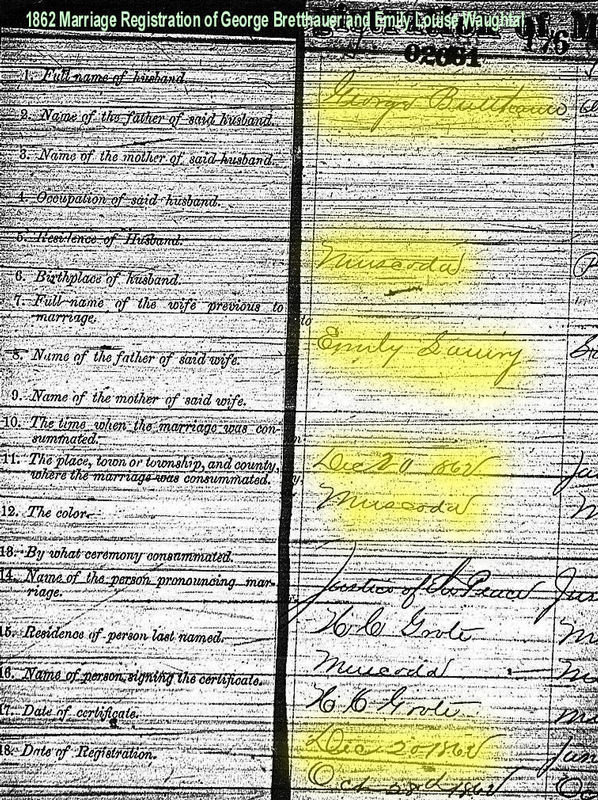 1862 Marriage Registration of George Bretthauer and Emily Louise Waughtal
Registration of M
176
02661
1. Full name of husband.
George Bretthauer
2. Name of the father of said husband.
3. Name of the mother of said husband.
4. Occupation of said husband.
5. Residence of Husband.
Muscoda
6. Birthplace of husband.
7. Full name of the wife previous to
marriage.
Emily Louisy
8. Name of the father of said wife.
9. Name of the mother of said wife.
10. The time when the marriage was con-
summated.
Dec 20 1862
11. The place, town or township, and county,
where the marriage was consummated.
Muscoda
12. The color.
13. By what ceremony consummated.
Justice of the Peace
14. Name of the person pronouncing mar-
riage.
H C Grote
15. Residence of person last named.
Muscoda
16. Name of person signing the certificate.
H C Grote
17. Date of certificate.
Dec 20 1862
18. Date of Registration.
Oct 1862